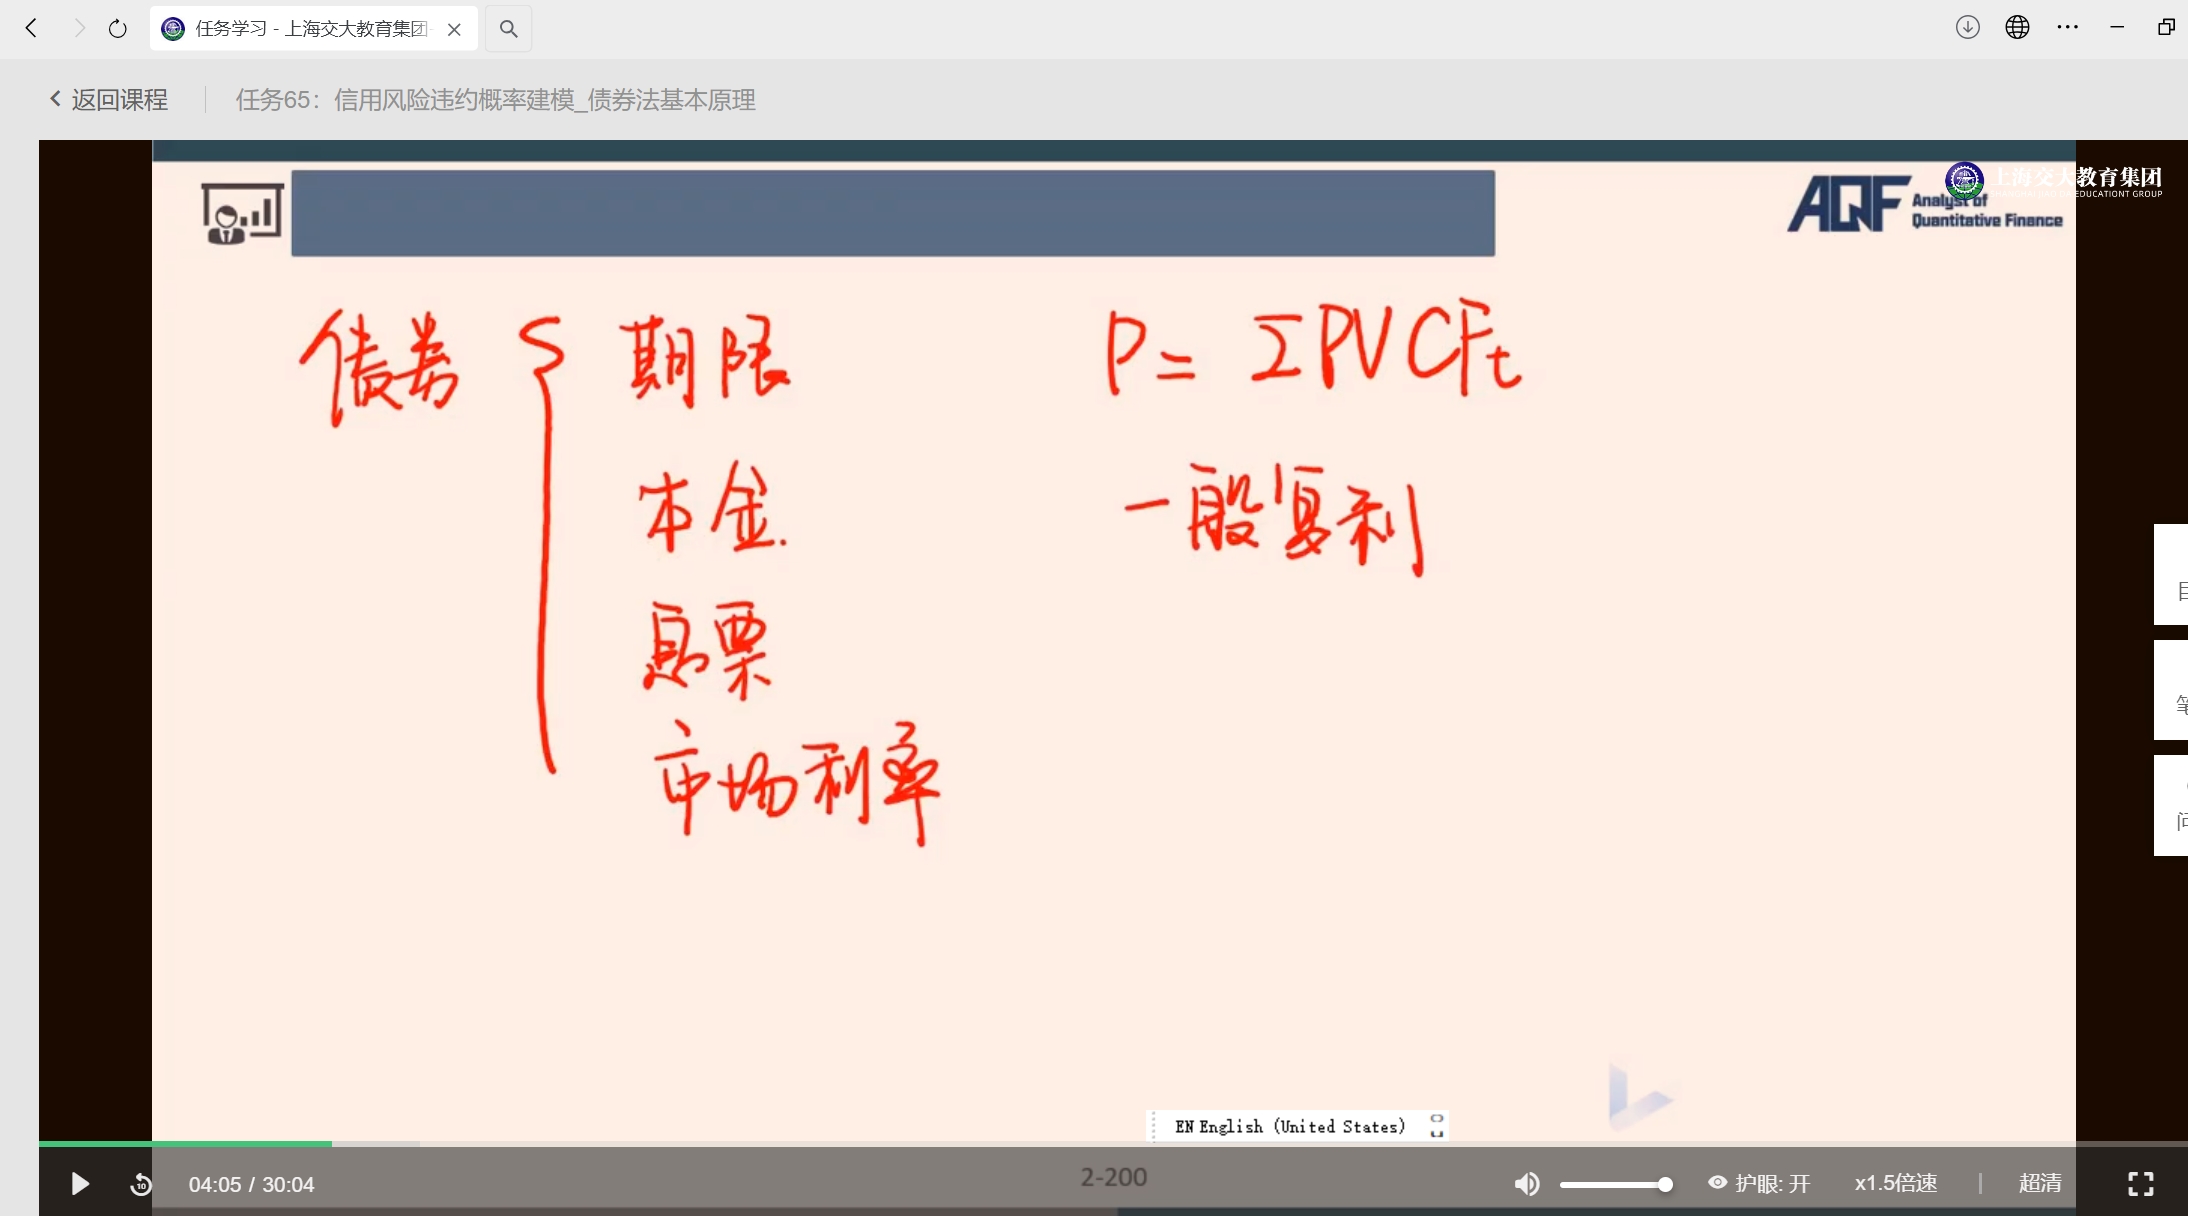 任务学习 - 上海交大教育集团
返回课程
任务65：信用风险违约概率建模_债券法基本原理
AQF Analyst of
Quantitative Finance
上海交大教育集团
EDUCATIONT GROUP
债券 期限 P = ΣPVCFt
本金. 一般复利
息票
市场利率
EN English (United States)
2-200
10
04:05 / 30:04
护眼: 开
x1.5倍速
超清